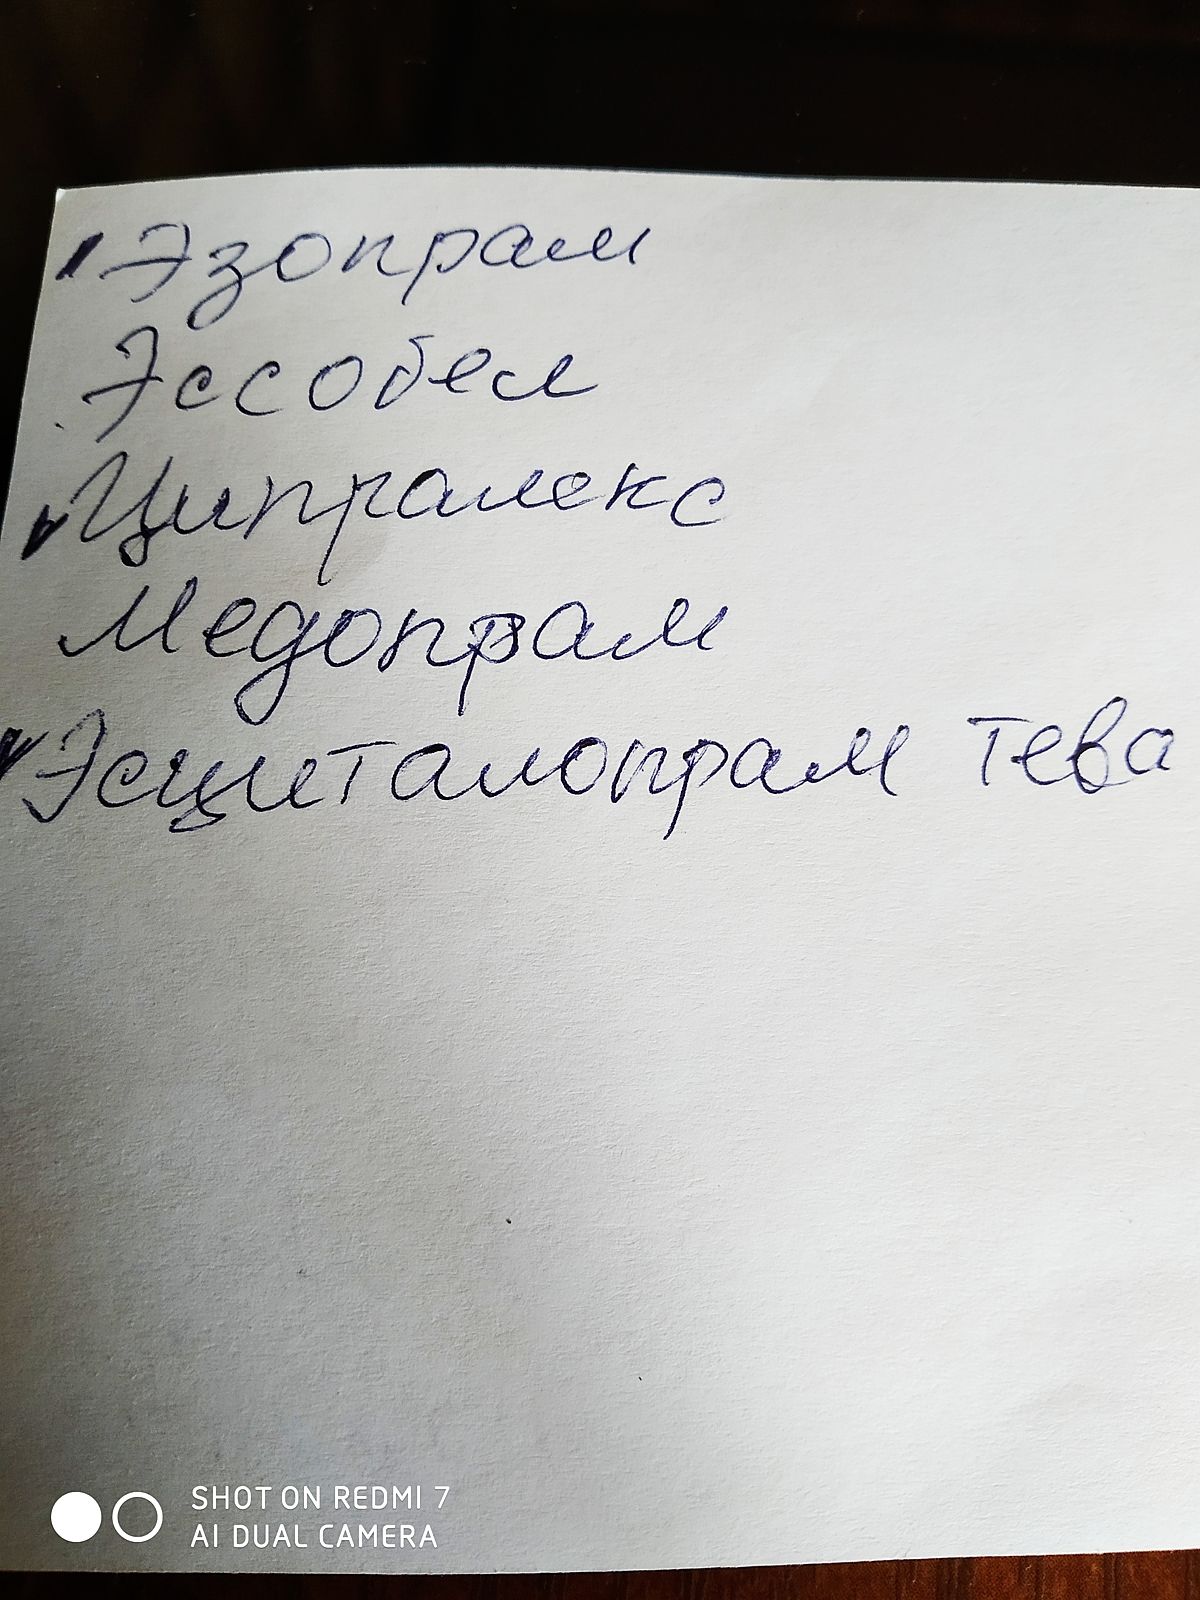 Эзопрам
Эссобел
Ципралекс
Медопрам
Эсциталопрам тева
SHOT ON REDMI 7
AI DUAL CAMERA